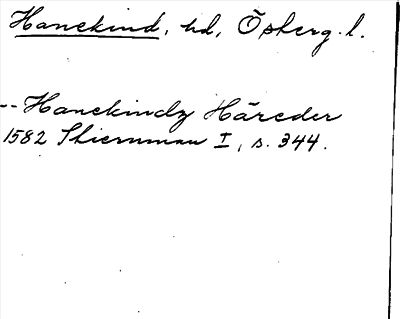 Hanekind, hd, Österg. l.
-- Hanekindz Häreder
1582 Stiernman I, s. 344.